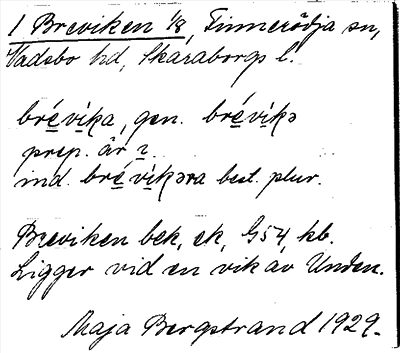 1 Breviken 1/8, Finnerödja sn,
Vadsbo hd, Skaraborgs l.
brévika, gen. brévikə
prep. är ı.
ind. brévikəra best. plur.
Breviken bek, ek, G54, kb.
Ligger vid en vik av Unden.
Maja Bergstrand 1929.